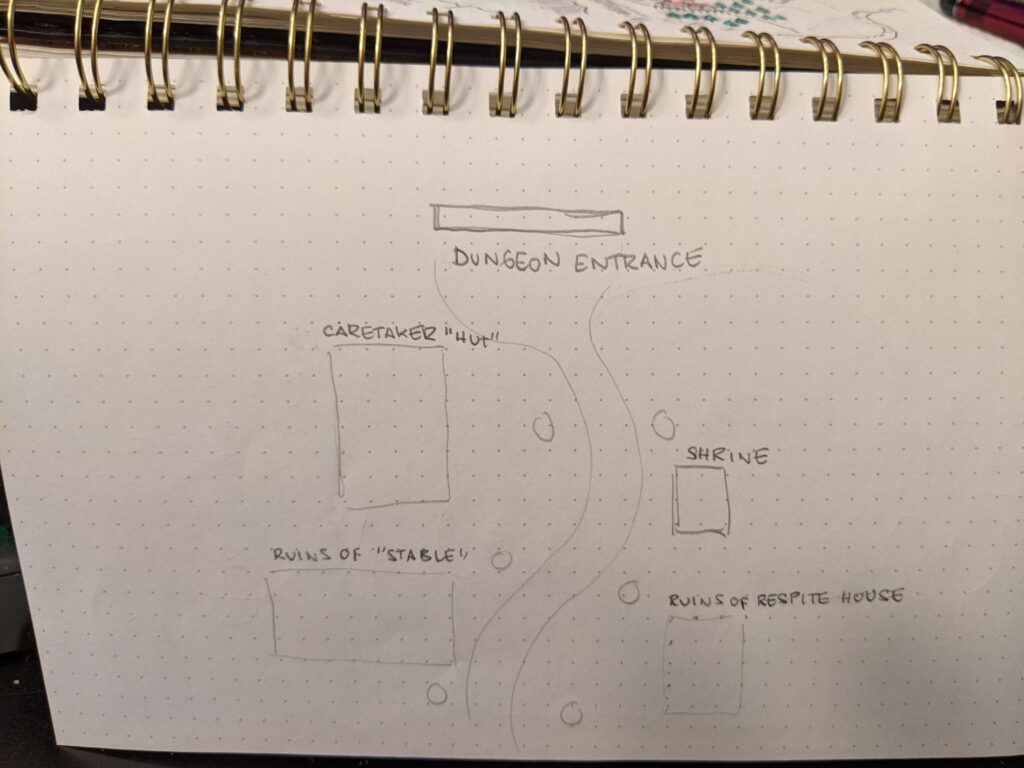 DUNGEON ENTRANCE
CARETAKER "HUT"
SHRINE
RUINS OF "STABLE"
RUINS OF RESPITE HOUSE